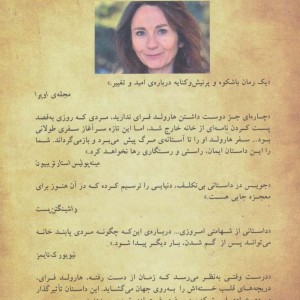 «یک رمان باشکوه و پرنیش‌وکنایه درباره‌ی امید و تغییر.»
مجله‌ی اوپرا
«چاره‌ای جز دوست داشتن هارولد فرای، مردی که روزی به‌قصد
پست کردن نامه‌ای از خانه خارج شد، اما این تازه سرآغاز سفری طولانی
بود... سفر هارولد او را تا آستانه‌ی مرگ پیش می‌برد و بازمی‌گرداند. شما
را این داستان ایمان، راستی و رستگاری رها نخواهد کرد.»
مینه‌پولیس استار تریبیون
«جویس در داستانی بی‌تکلف، دنیایی را ترسیم کرده که در آن هنوز برای
معجزه جایی هست.»
واشینگتن‌پست
«داستانی از شهامتی امروزی... درباره‌ی این‌که چگونه مردی پابند خانه
می‌تواند پس از گم شدن، بار دیگر پیدا شود.»
نیویورک‌تایمز
«درست وقتی به‌نظر می‌رسد که زمان از دست رفته، هارولد فرای،
دریچه‌های قلب خسته‌اش را به‌روی جهان می‌گشاید. این داستان تأثیرگذار